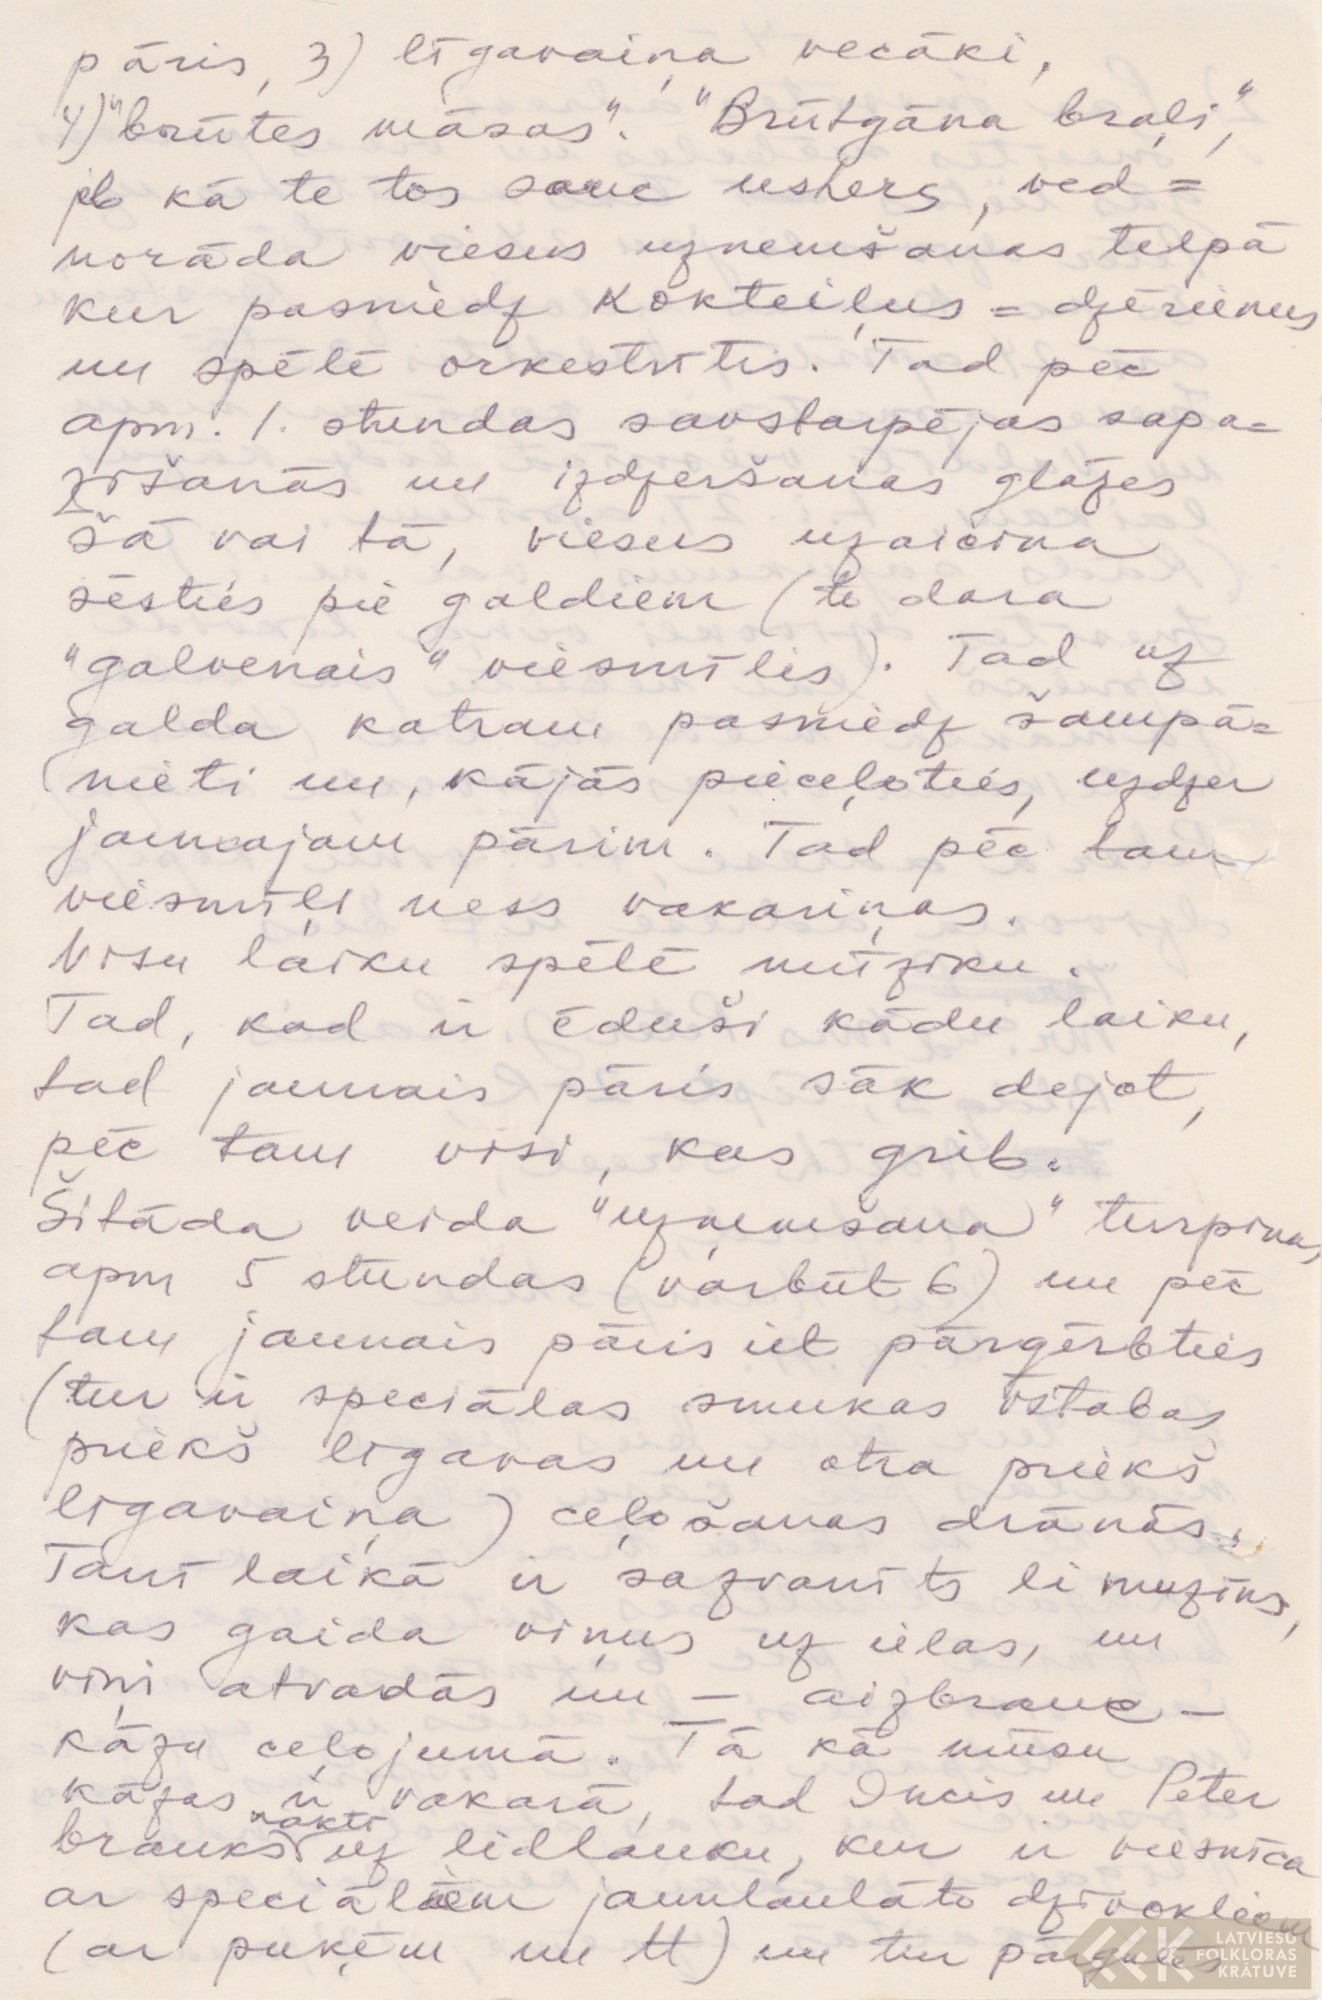 pāris, 3) līgavaiņa vecāki,
4) "brūtes māsas". "Brūtgāna braļi",
jb kā te tos sauc ushers, ved =
norāda viesus uzņemšanas telpā
kur pasniedz kokteiļus = dzērienus
un spēlē orkestrītis. Tad pēc
apm. 1. stundas savstarpējas sapa=
zīšanās un izdzeršanas glāzes
šā vai tā, viesus uzaicina
sēsties pie galdiem (to dara
"galvenais" viesmīlis). Tad uz
galda katram pasniedz šampā=
nieti un, kājās pieceļoties, uzdzer
jaunajam pārim. Tad pēc tam
viesmīļi ness vakariņas.
Visu laiku spēlē mūziku.
Tad, kad ir ēduši kādu laiku,
tad jaunais pāris sāk dejot,
pēc tam visi, kas grib.
Šitāda veida "uzņemšana" turpinās
apm 5 stundas (varbūt 6) un pēc
tam jaunais pāris iet pārģērbties
(tur ir speciālas smukas istabas
priekš līgavas un otra priekš
līgavaiņa) ceļošanas drānās.
Tanī laikā ir sazvanīts limuzīns,
kas gaida viņus uz ielas, un
viņi atvadās un — aizbrauc —
kāzu ceļojumā. Tā kā mūsu
kāzas ir vakarā, tad Incis un Peter
nakti
brauks uz lidlauku, kur ir viesnīca
ar speciāliem jaunlaulāto dzīvokļiem
(ar puķēm un tt) un tur pārgulēs
LATVIEŠU
FOLKLORAS
KRĀTUVE